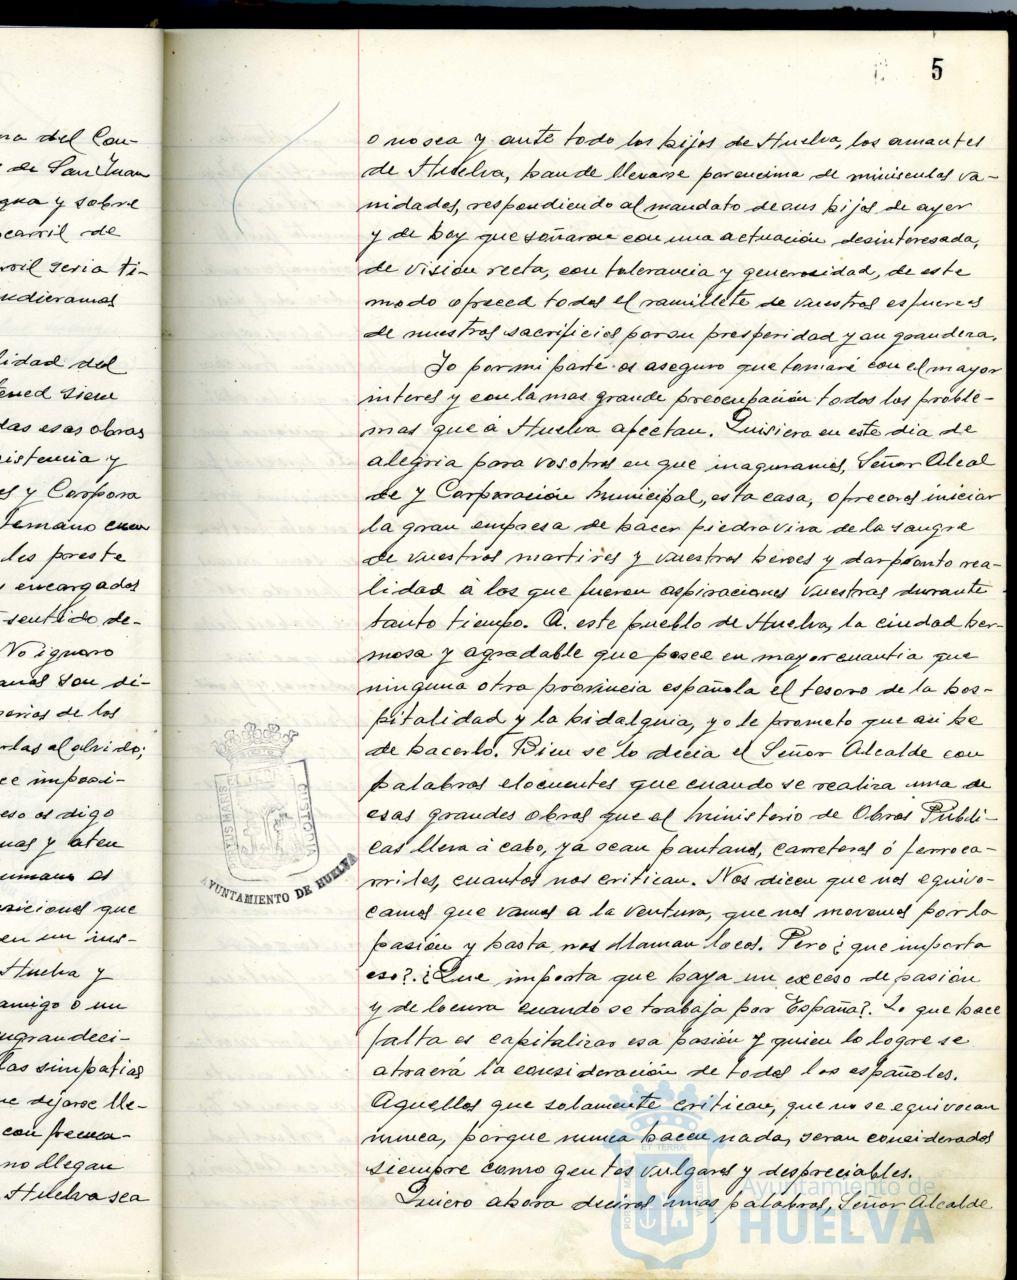 5
na del Con-
de San Juan
gua y sobre
ocarril de
seria ti-
udieramos
lidad del
tened siem
das esas obras
istencia y
es y Corpora
temano
les preste
encargados
sentido de-
No ignoro
son di-
de los
rlas al olvido;
ce imposi-
eso os digo
nas y aten
umano es
siciones que
en un ins-
Huelva y
amigo o un
ngrandeci-
las simpatias
ue dejarse lle-
con frecue-
no llegan
Huelva sea
o no sea y ante todo los hijos de Huelva, los amantes
de Huelva, han de llevarse por encima de minisculas va-
nidades, respondiendo al mandato de sus hijos de ayer
y de hoy que soñaron con una actuación desinteresada,
de visión recta, con tolerancia y generosidad, de este
modo ofreced todos el ramillete de vuestros esfuerzos
de nuestros sacrificios por su prosperidad y su grandeza.
Yo por mi parte os aseguro que tomaré con el mayor
interes y con la mas grande preocupación todos los proble-
mas que á Huelva afectan. Quisiera en este dia de
alegria para vosotros en que inaguramos, Señor Alcal
de y Corporación Municipal, esta casa, ofreceros iniciar
la gran empresa de hacer piedra viva de la sangre
de vuestros martires y vuestros heroes y dar pronto rea-
lidad á los que fueron aspiraciones vuestras durante
tanto tiempo. A. este pueblo de Huelva, la ciudad her-
mosa y agradable que posee en mayor cuantia que
ninguna otra provincia española el tesoro de la hos-
pitalidad y la hidalguia, yo le prometo que asi he
de hacerlo. Bien se lo decia el Señor Alcalde con
palabras elocuentes que cuando se realiza una de
esas grandes obras que el Ministerio de Obras Públi-
cas lleva á cabo, ya sean pantanos, carreteras ó ferroca-
rriles, cuantos nos critican. Nos dicen que nos equivo-
camos que vamos a la ventura, que nos movemos por la
pasión y hasta nos llaman locos. Pero ¿que importa
eso?. ¿Que importa que haya un exceso de pasión
y de locura cuando se trabaja por España?. Lo que hace
falta es capitalizar esa pasión y quien lo logre se
atraerá la consideración de todos los españoles.
Aquellos que solamente critican, que no se equivocan
nunca, porque nunca hacen nada, seran considerados
siempre como gentes vulgares y despreciables.
Quiero ahora deciros unas palabras, Señor Alcalde
AYUNTAMIENTO DE HUELVA
Ayuntamiento de
HUELVA